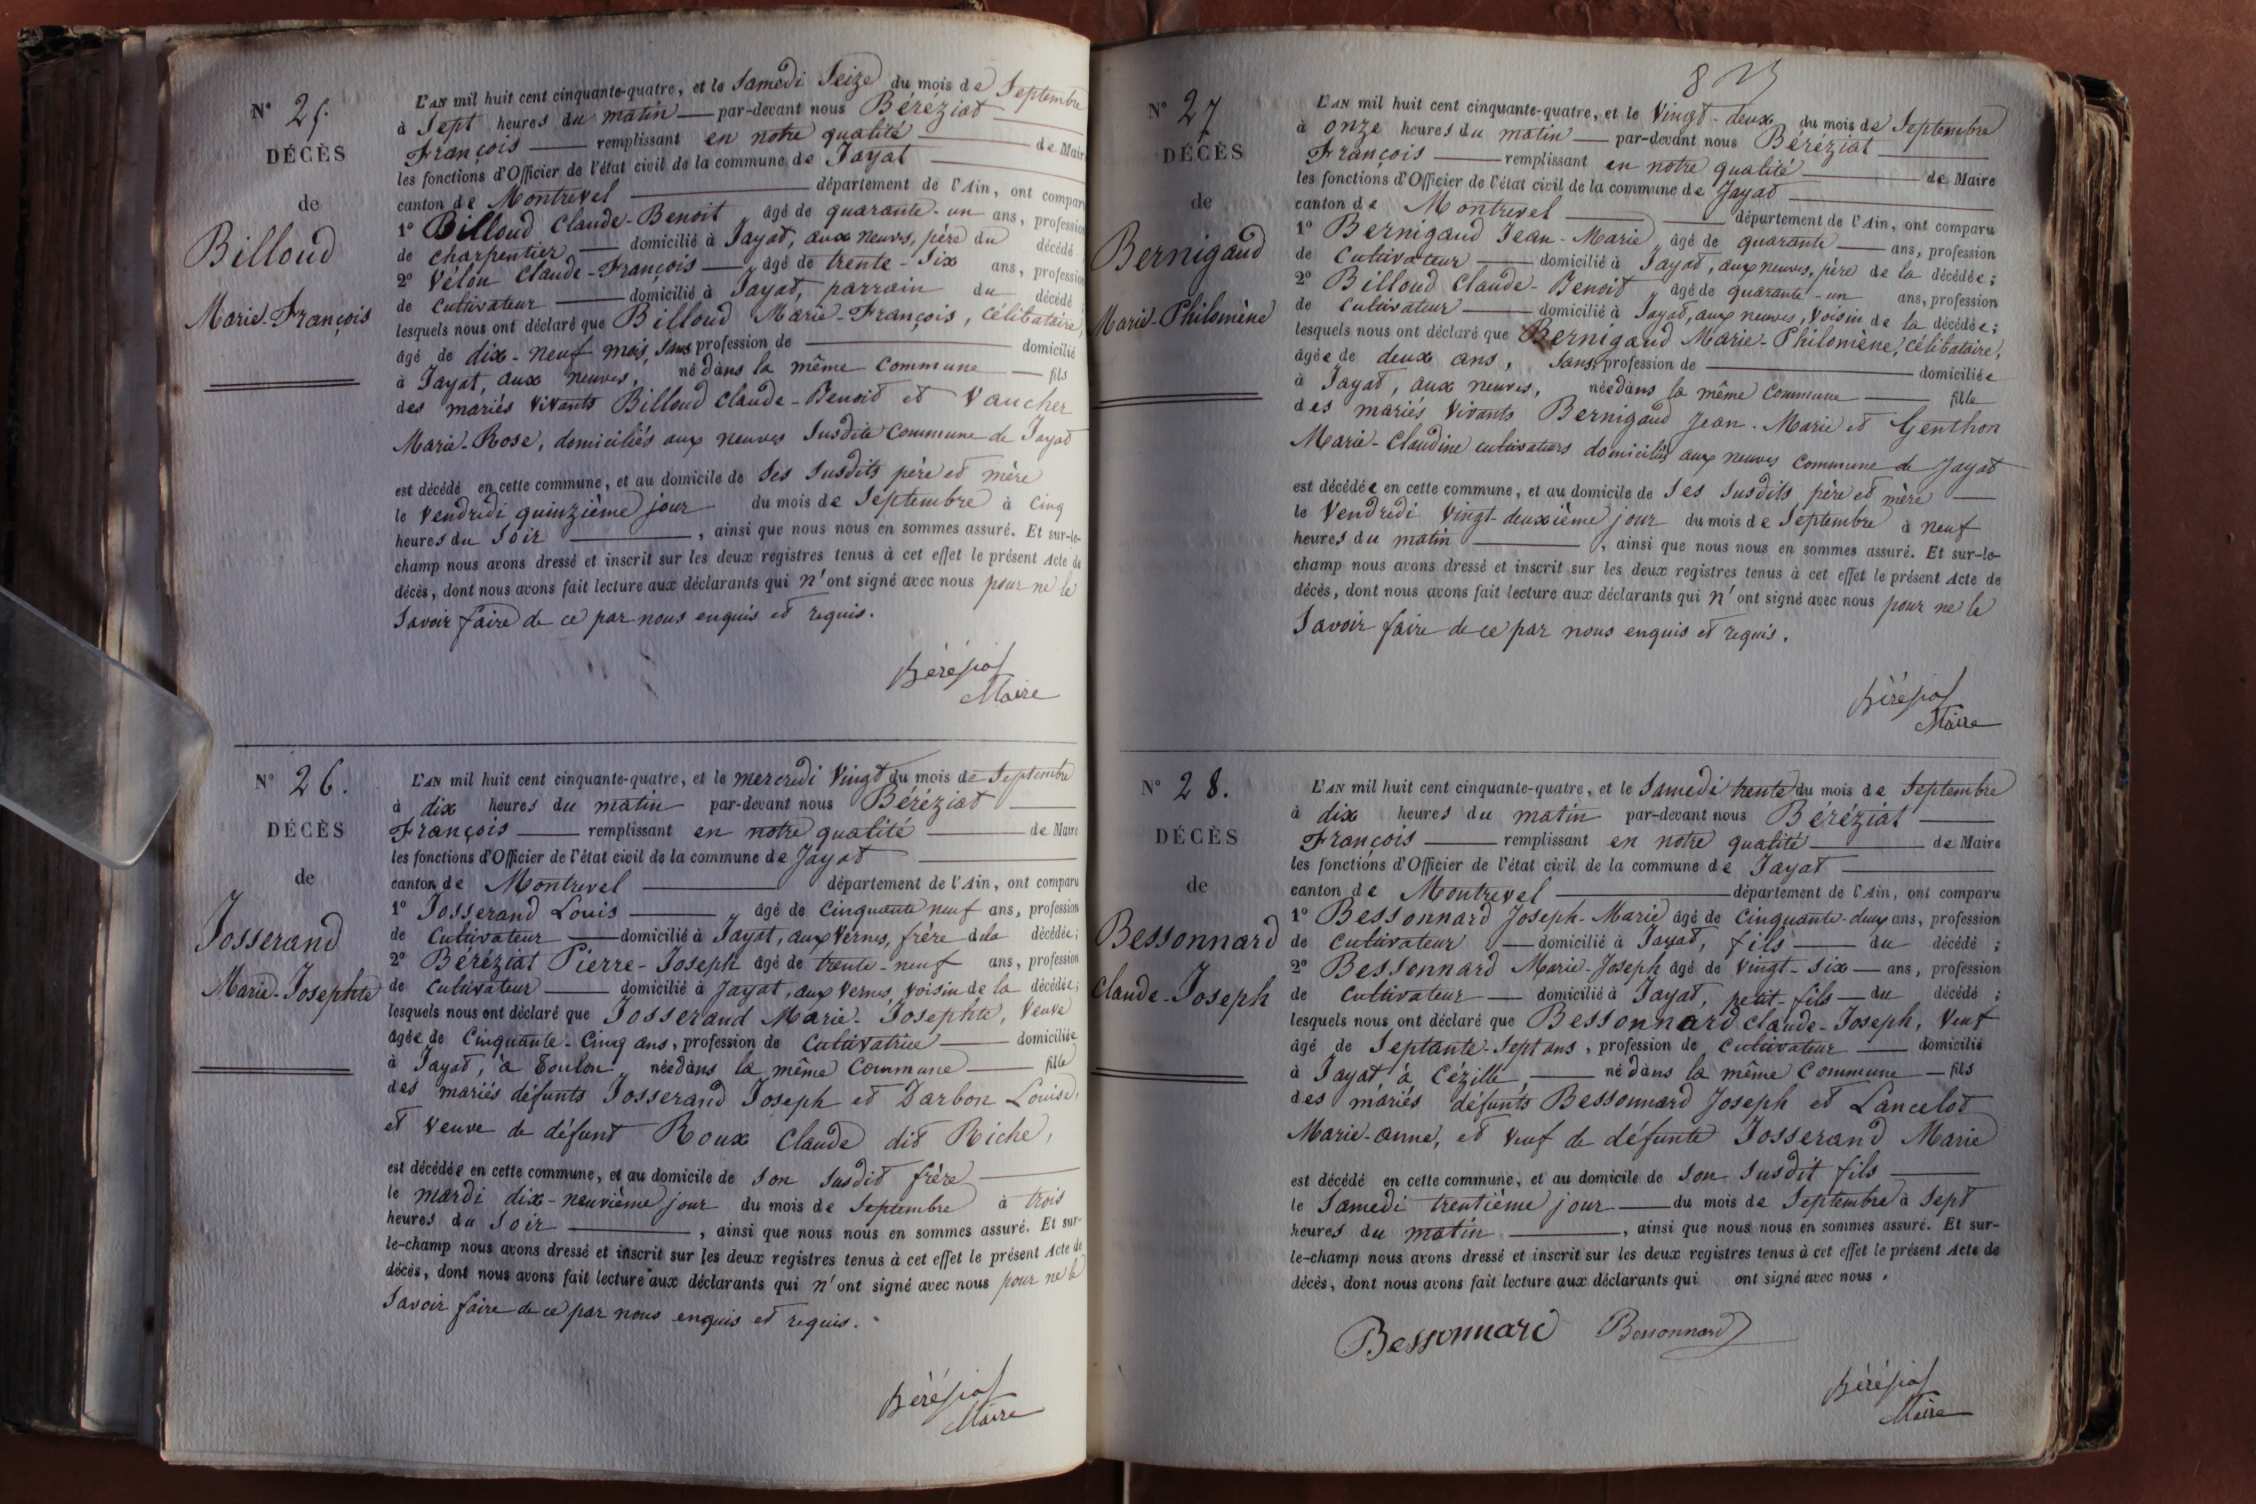 N° 25.
DÉCÈS
de
Billoud
Marie-François
L'AN mil huit cent cinquante-quatre, et le Samedi Seize du mois de Septembre
à Sept heures du matin par-devant nous Béréziat
François remplissant en notre qualité de Maire
les fonctions d'Officier de l'état civil de la commune de Jayat
canton de Montrevel département de l'Ain, ont comparu
1° Billoud Claude-Benoit âgé de quarante-un ans, profession
de charpentier domicilié à Jayat, aux neuves, père du décédé
2° Vélon Claude-François âgé de trente-Six ans, profession
de cultivateur domicilié à Jayat, parrain du décédé ;
lesquels nous ont déclaré que Billoud Marie-François, célibataire,
âgé de dix-neuf mois, sans profession de domicilié
à Jayat, aux neuves, né dans la même commune fils
des mariés vivants Billoud Claude-Benoit et Vaucher
Marie-Rose, domiciliés aux neuves susdite commune de Jayat
est décédé en cette commune, et au domicile de ses susdits père et mère
le vendredi quinzième jour du mois de Septembre à cinq
heures du soir , ainsi que nous nous en sommes assuré. Et sur-le-
champ nous avons dressé et inscrit sur les deux registres tenus à cet effet le présent Acte de
décès, dont nous avons fait lecture aux déclarants qui n'ont signé avec nous pour ne le
Savoir faire de ce par nous enquis et requis.
Béréziat
Maire
N° 26.
DÉCÈS
de
Josserand
Marie-Josephte
L'AN mil huit cent cinquante-quatre, et le mercredi vingt du mois de Septembre
à dix heures du matin par-devant nous Béréziat
François remplissant en notre qualité de Maire
les fonctions d'Officier de l'état civil de la commune de Jayat
canton de Montrevel département de l'Ain, ont comparu
1° Josserand Louis âgé de cinquante neuf ans, profession
de cultivateur domicilié à Jayat, aux Vernes, frère de la décédée ;
2° Béréziat Pierre-Joseph âgé de trente-neuf ans, profession
de cultivateur domicilié à Jayat, aux Vernes, voisin de la décédée ;
lesquels nous ont déclaré que Josserand Marie-Josephte, Veuve
âgée de cinquante-cinq ans, profession de cultivatrice domiciliée
à Jayat, à Toulon née dans la même commune fille
des mariés défunts Josserand Joseph et Darbon Louise,
et veuve de défunt Roux Claude dit Riche,
est décédée en cette commune, et au domicile de son susdit frère
le mardi dix-neuvième jour du mois de Septembre à trois
heures du soir , ainsi que nous nous en sommes assuré. Et sur-
le-champ nous avons dressé et inscrit sur les deux registres tenus à cet effet le présent Acte de
décès, dont nous avons fait lecture aux déclarants qui n'ont signé avec nous pour ne le
Savoir faire de ce par nous enquis et requis.
Béréziat
Maire
N° 27
DÉCÈS
de
Bernigaud
Marie-Philomène
L'AN mil huit cent cinquante-quatre, et le vingt-deux du mois de Septembre
à onze heures du matin par-devant nous Béréziat
François remplissant en notre qualité de Maire
les fonctions d'Officier de l'état civil de la commune de Jayat
canton de Montrevel département de l'Ain, ont comparu
1° Bernigaud Jean-Marie âgé de quarante ans, profession
de cultivateur domicilié à Jayat, aux neuves, père de la décédée ;
2° Billoud Claude-Benoit âgé de quarante-un ans, profession
de cultivateur domicilié à Jayat, aux neuves, voisin de la décédée ;
lesquels nous ont déclaré que Bernigaud Marie-Philomène, célibataire,
âgée de deux ans, sans profession de domiciliée
à Jayat, aux neuves, née dans la même commune fille
des mariés vivants Bernigaud Jean-Marie et Genthon
Marie-Claudine cultivateurs domiciliés aux neuves commune de Jayat
est décédée en cette commune, et au domicile de ses susdits père et mère
le Vendredi vingt-deuxième jour du mois de Septembre à neuf
heures du matin , ainsi que nous nous en sommes assuré. Et sur-le-
champ nous avons dressé et inscrit sur les deux registres tenus à cet effet le présent Acte de
décès, dont nous avons fait lecture aux déclarants qui n'ont signé avec nous pour ne le
Savoir faire de ce par nous enquis et requis.
Béréziat
Maire
N° 28.
DÉCÈS
de
Bessonnard
Claude-Joseph
L'AN mil huit cent cinquante-quatre, et le Samedi trente du mois de Septembre
à dix heures du matin par-devant nous Béréziat
François remplissant en notre qualité de Maire
les fonctions d'Officier de l'état civil de la commune de Jayat
canton de Montrevel département de l'Ain, ont comparu
1° Bessonnard Joseph-Marie âgé de cinquante-deux ans, profession
de cultivateur domicilié à Jayat, fils du décédé ;
2° Bessonnard Marie-Joseph âgé de vingt-six ans, profession
de cultivateur domicilié à Jayat, petit-fils du décédé ;
lesquels nous ont déclaré que Bessonnard Claude-Joseph, veuf
âgé de Septante-Sept ans, profession de cultivateur domicilié
à Jayat, à Cézille, né dans la même commune fils
des mariés défunts Bessonnard Joseph et Lancelot
Marie-anne, et veuf de défunte Josserand Marie
est décédé en cette commune, et au domicile de son susdit fils
le Samedi trentième jour du mois de Septembre à Sept
heures du matin , ainsi que nous nous en sommes assuré. Et sur-
le-champ nous avons dressé et inscrit sur les deux registres tenus à cet effet le présent Acte de
décès, dont nous avons fait lecture aux déclarants qui ont signé avec nous.
Bessonnard Bessonnard
Béréziat
Maire